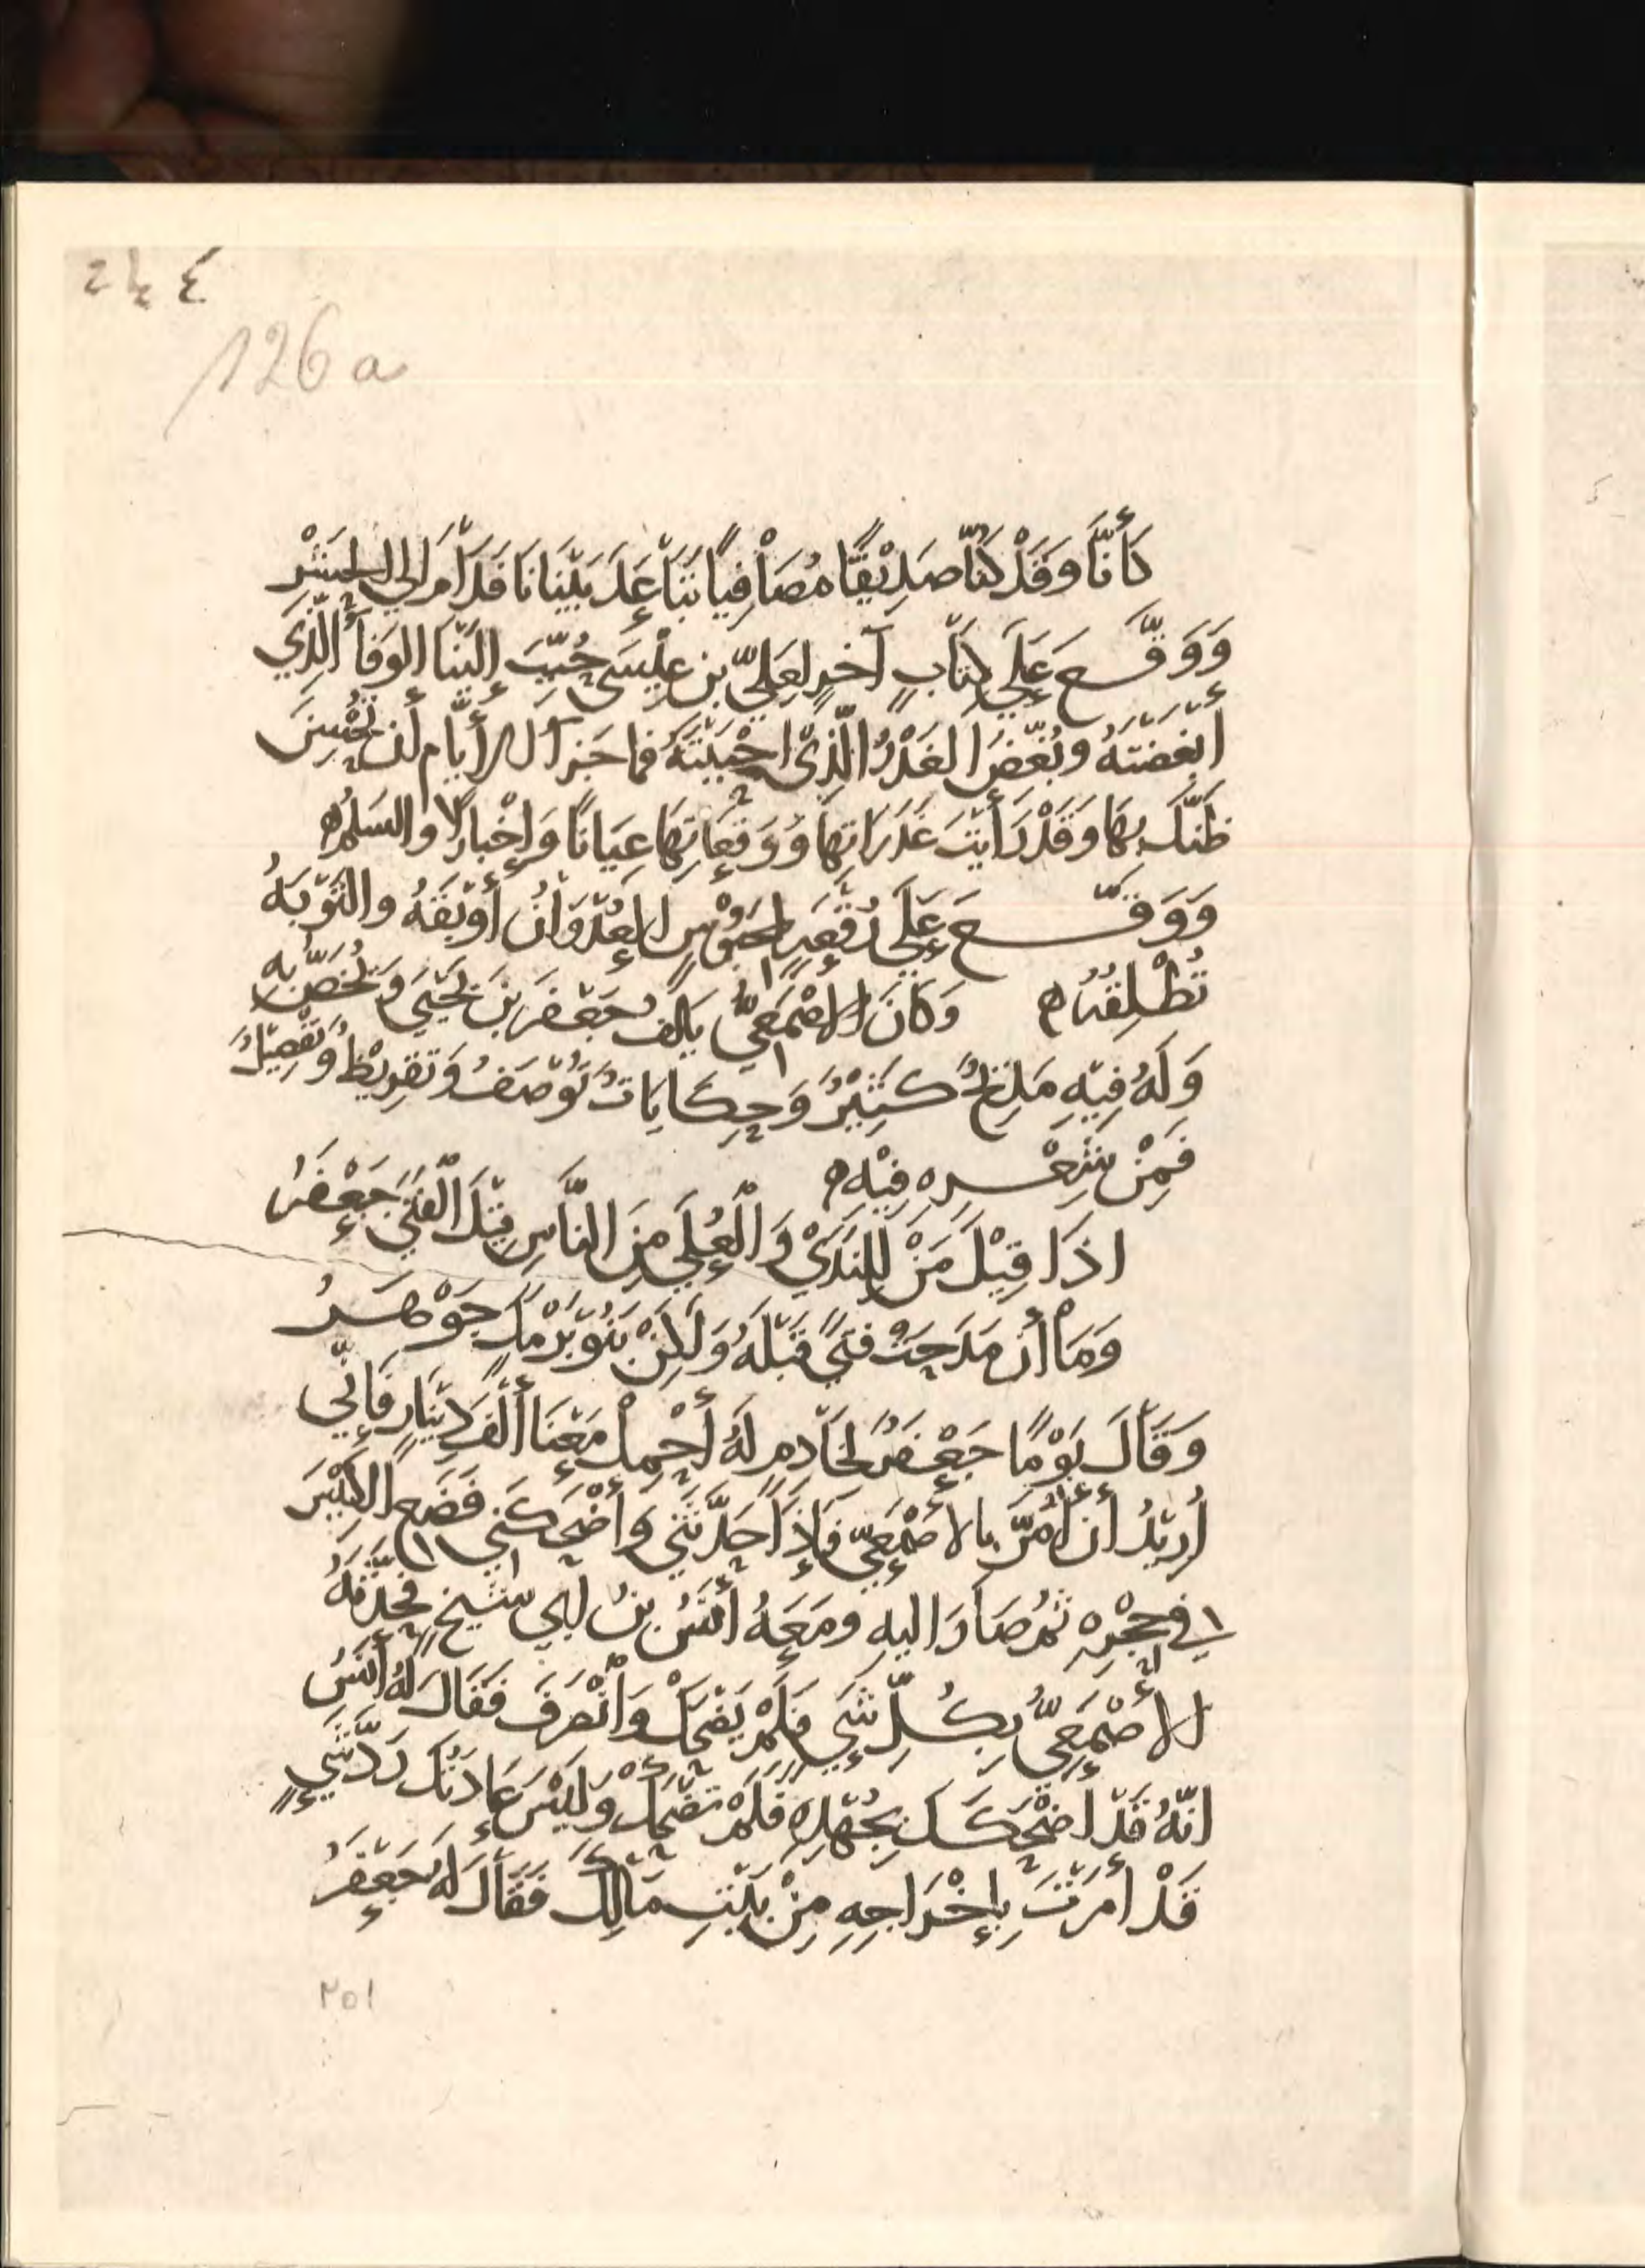 ٢٤٤
126 a
كَأَنَّا وَقَدْ كُنَّا صَدِيْقًا مُصَافِيًا تَبَاعَدَ بَيْنَانَا فَدَامَ إلى الحَشْرِ
وَوَقَّعَ عَلَى كِتَابٍ آخر لِعَلِيّ بن عِيْسَى حُبِّبَ إِلَيْنَا الوَفَأُ الَّذِي
أَبْغَضْتَهُ وبُغِّضَ الغَدْرُ الَّذِيْ احْبَبْتَهُ فما جَزَآ الأَيَّام أن تُحْسِنَ
ظَنَّكَ بِهَا وَقَدْ رَأَيْتَ غَدَرَاتِهَا وَوَقَعَاتِهَا عِيَانًا وَإِخْبارًا والسَلم ه
وَوَقَّعَ عَلَى رُقْعَةِ مَحبُوْسٍ العُدْوَانُ أَوْبَقَهُ والتَوْبَةُ
تُطْلِقُهُ ه وَكَانَ الأَصْمَعِيُّ يَالَفُ جَعْفَرَ بْنَ يَحْيَى وَيُخَصُّ بِهِ
وَلَهُ فِيْهِ مَدِيْحٌ كَثِيْرٌ وَحِكَايَاتٌ تُوْصَفُ وَتَقْرِيْظٌ وَتَفْضِيْلٌ
فَمِنْ شِعْرِهِ فِيْهِ ه
اذَا قِيْلَ مَنْ لِلنَدَيْ وَالْعُلَى مِنَ النَّاسِ قِيْلَ الْفَتَى جَعْفَرُ
وَمَا أن مَدَحْتُ فَتًى قَبْلَهُ وَلَكِنْ بَنُوْ بَرْمَكَ جَوْهَرُ
وَقَالَ يَوْمًا جَعْفَرٌ لِخَادِمٍ لَهُ أَحْمِلْ مَعْنَا أَلْفَ دِيْنَارٍ فَإنِّي
أُرِيْدُ أن أَمُرَّ بالأَصْمَعِيّ فَإِذَا حَدَّثَنِي وَأَضْحَكَنِي فَضَعِ الكِيْسَ
في حِجْرِهِ ثم صَارَ اليهِ ومَعَهُ أَنَسُ بنُ أبي شيخٍ فحَدَّثَهُ
الأَصْمَعِيُّ بِكُلِّ شَيٍ فَلَمْ يَضْحَكْ وَانْصَرَفَ فَقَالَ لَهُ أَنَسُ
انَّهُ قَدْ اضْحَكَكَ بِجُهْدِهِ فَلَمْ تَضْحَكْ وَلَيْسَ عَادَتُكَ رَدَّ شَيٍ
قَدْ أَمَرْتَ بِإِخْرَاجِهِ مِنْ بَيْتِ مَالِكَ فَقَالَ لَهُ جَعْفَرُ
٢٥١